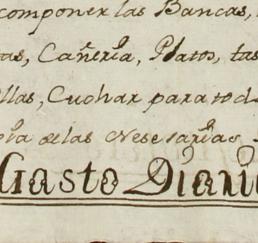 componer las Bancas,
as, Cañeria, Platos, tas
llas, Cuchar para tod
de las Nesesarias
Gasto Diari